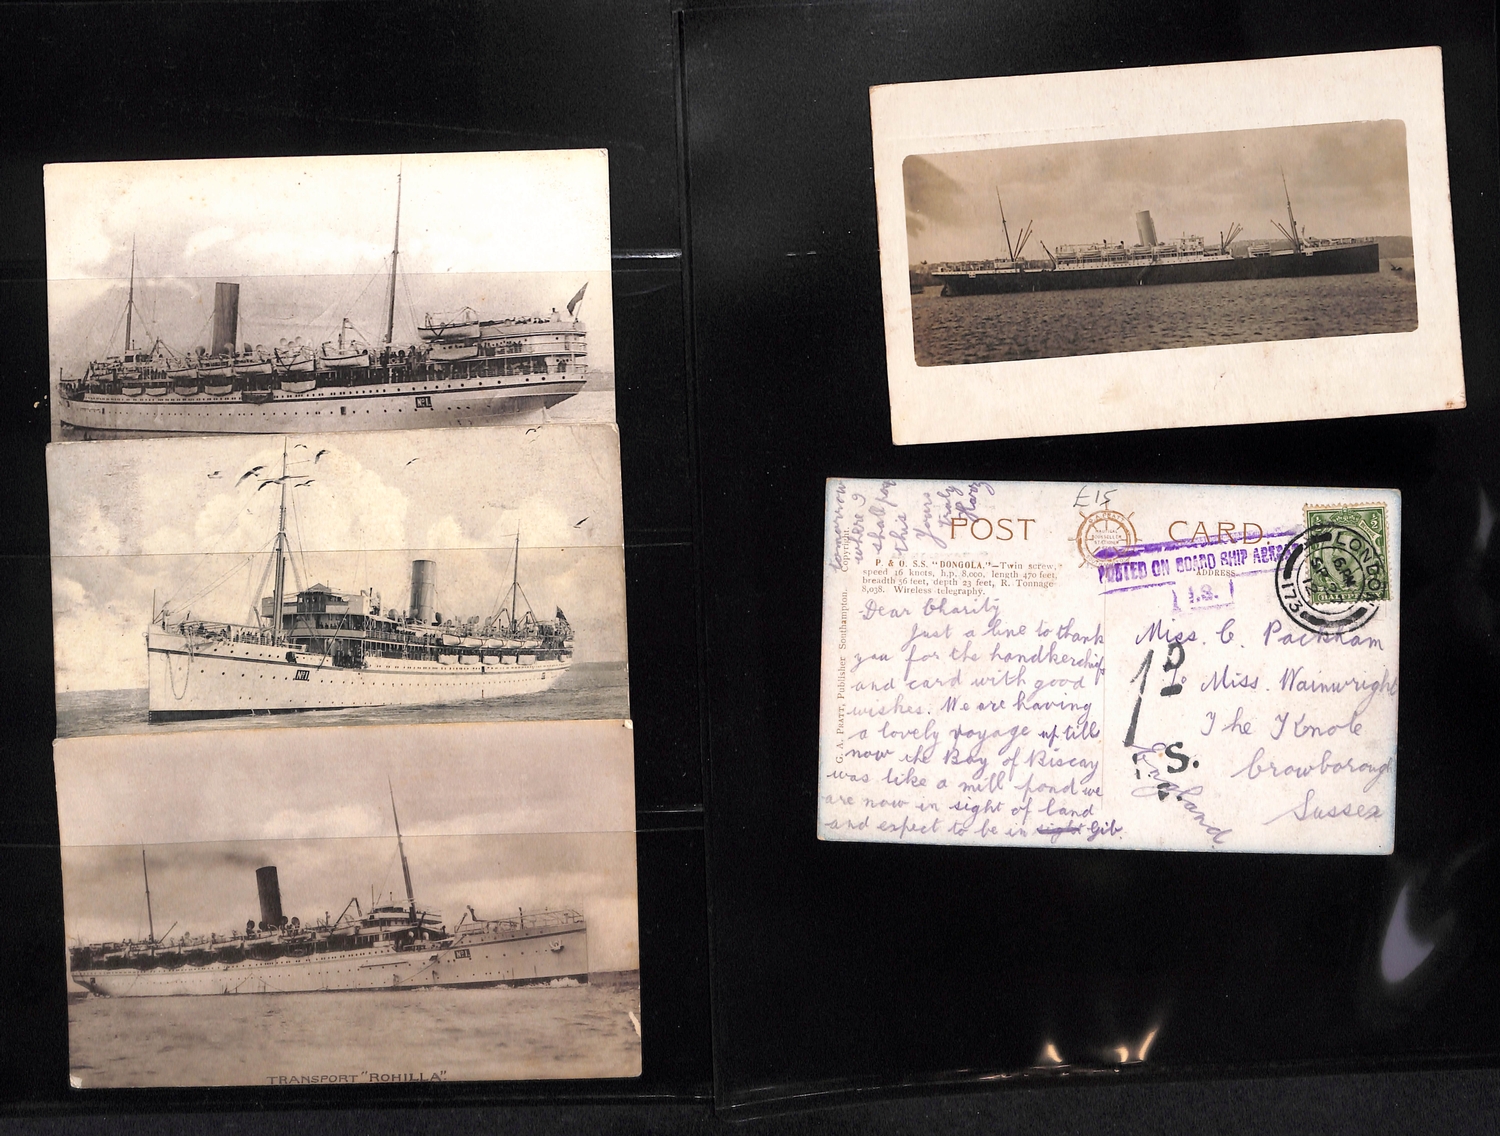 No 1.
No 1.
No 1.
TRANSPORT "ROHILLA".
£15
POST CARD
ADDRESS
POSTED ON BOARD SHIP ABROAD
I.S.
LONDON
173
HALFPENNY
P. & O. S.S. "DONGOLA."—Twin screw,
speed 16 knots, h.p. 8,000, length 470 feet,
breadth 56 feet, depth 23 feet, R. Tonnage
8,038. Wireless telegraphy.
G. A. PRATT, Publisher Southampton. Copyright.
Dear Charity
Just a line to thank
you for the handkerchief
and card with good
wishes. We are having
a lovely voyage up till
now the Bay of Biscay
was like a mill pond we
are now in sight of land
and expect to be in sight Gib.
tomorrow
where I
shall post
this
Yours
truly
Harry
Miss. C. Packham
Miss. Wainwright
The Knole
Crowborough
Sussex
England
1D
I.S.